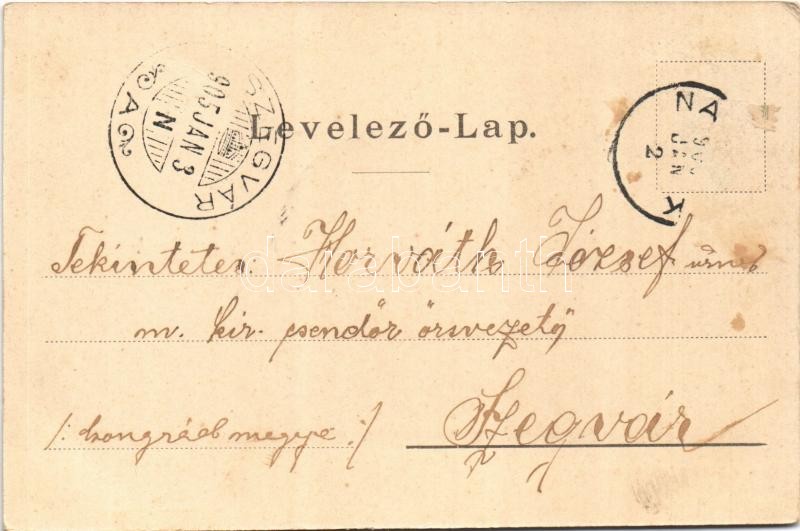 SZEGVÁR
905 JAN 3
N
A
NA
905 JAN 2
K
Levelező-Lap.
Tekintetes Horváth József úrnak
m. kir. csendőr őrsvezető
Szegvár
/: Csongrád megye :/
darabanth